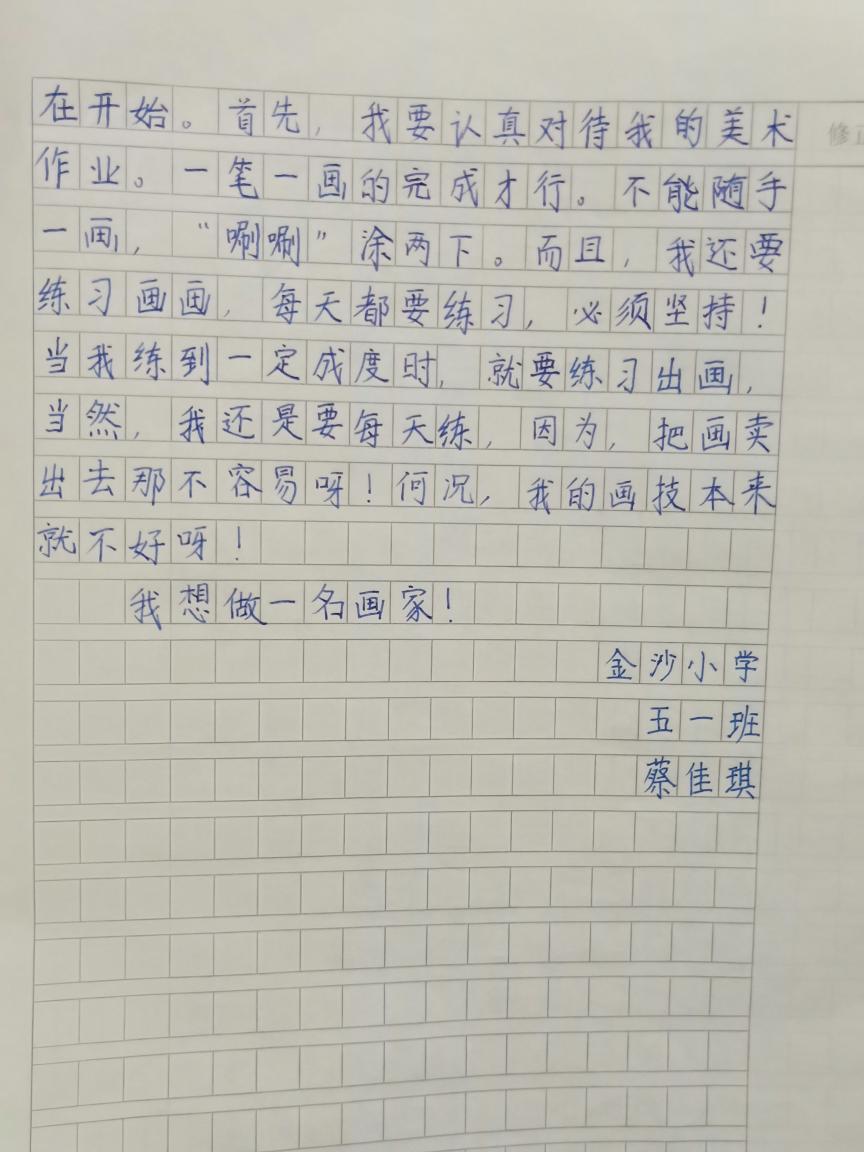 在开始。首先，我要认真对待我的美术
修正
作业。一笔一画的完成才行。不能随手
一画，“唰唰”涂两下。而且，我还要
练习画画，每天都要练习，必须坚持！
当我练到一定成度时，就要练习出画，
当然，我还是要每天练，因为，把画卖
出去那不容易呀！何况，我的画技本来
就不好呀！
我想做一名画家！
金沙小学
五一班
蔡佳琪